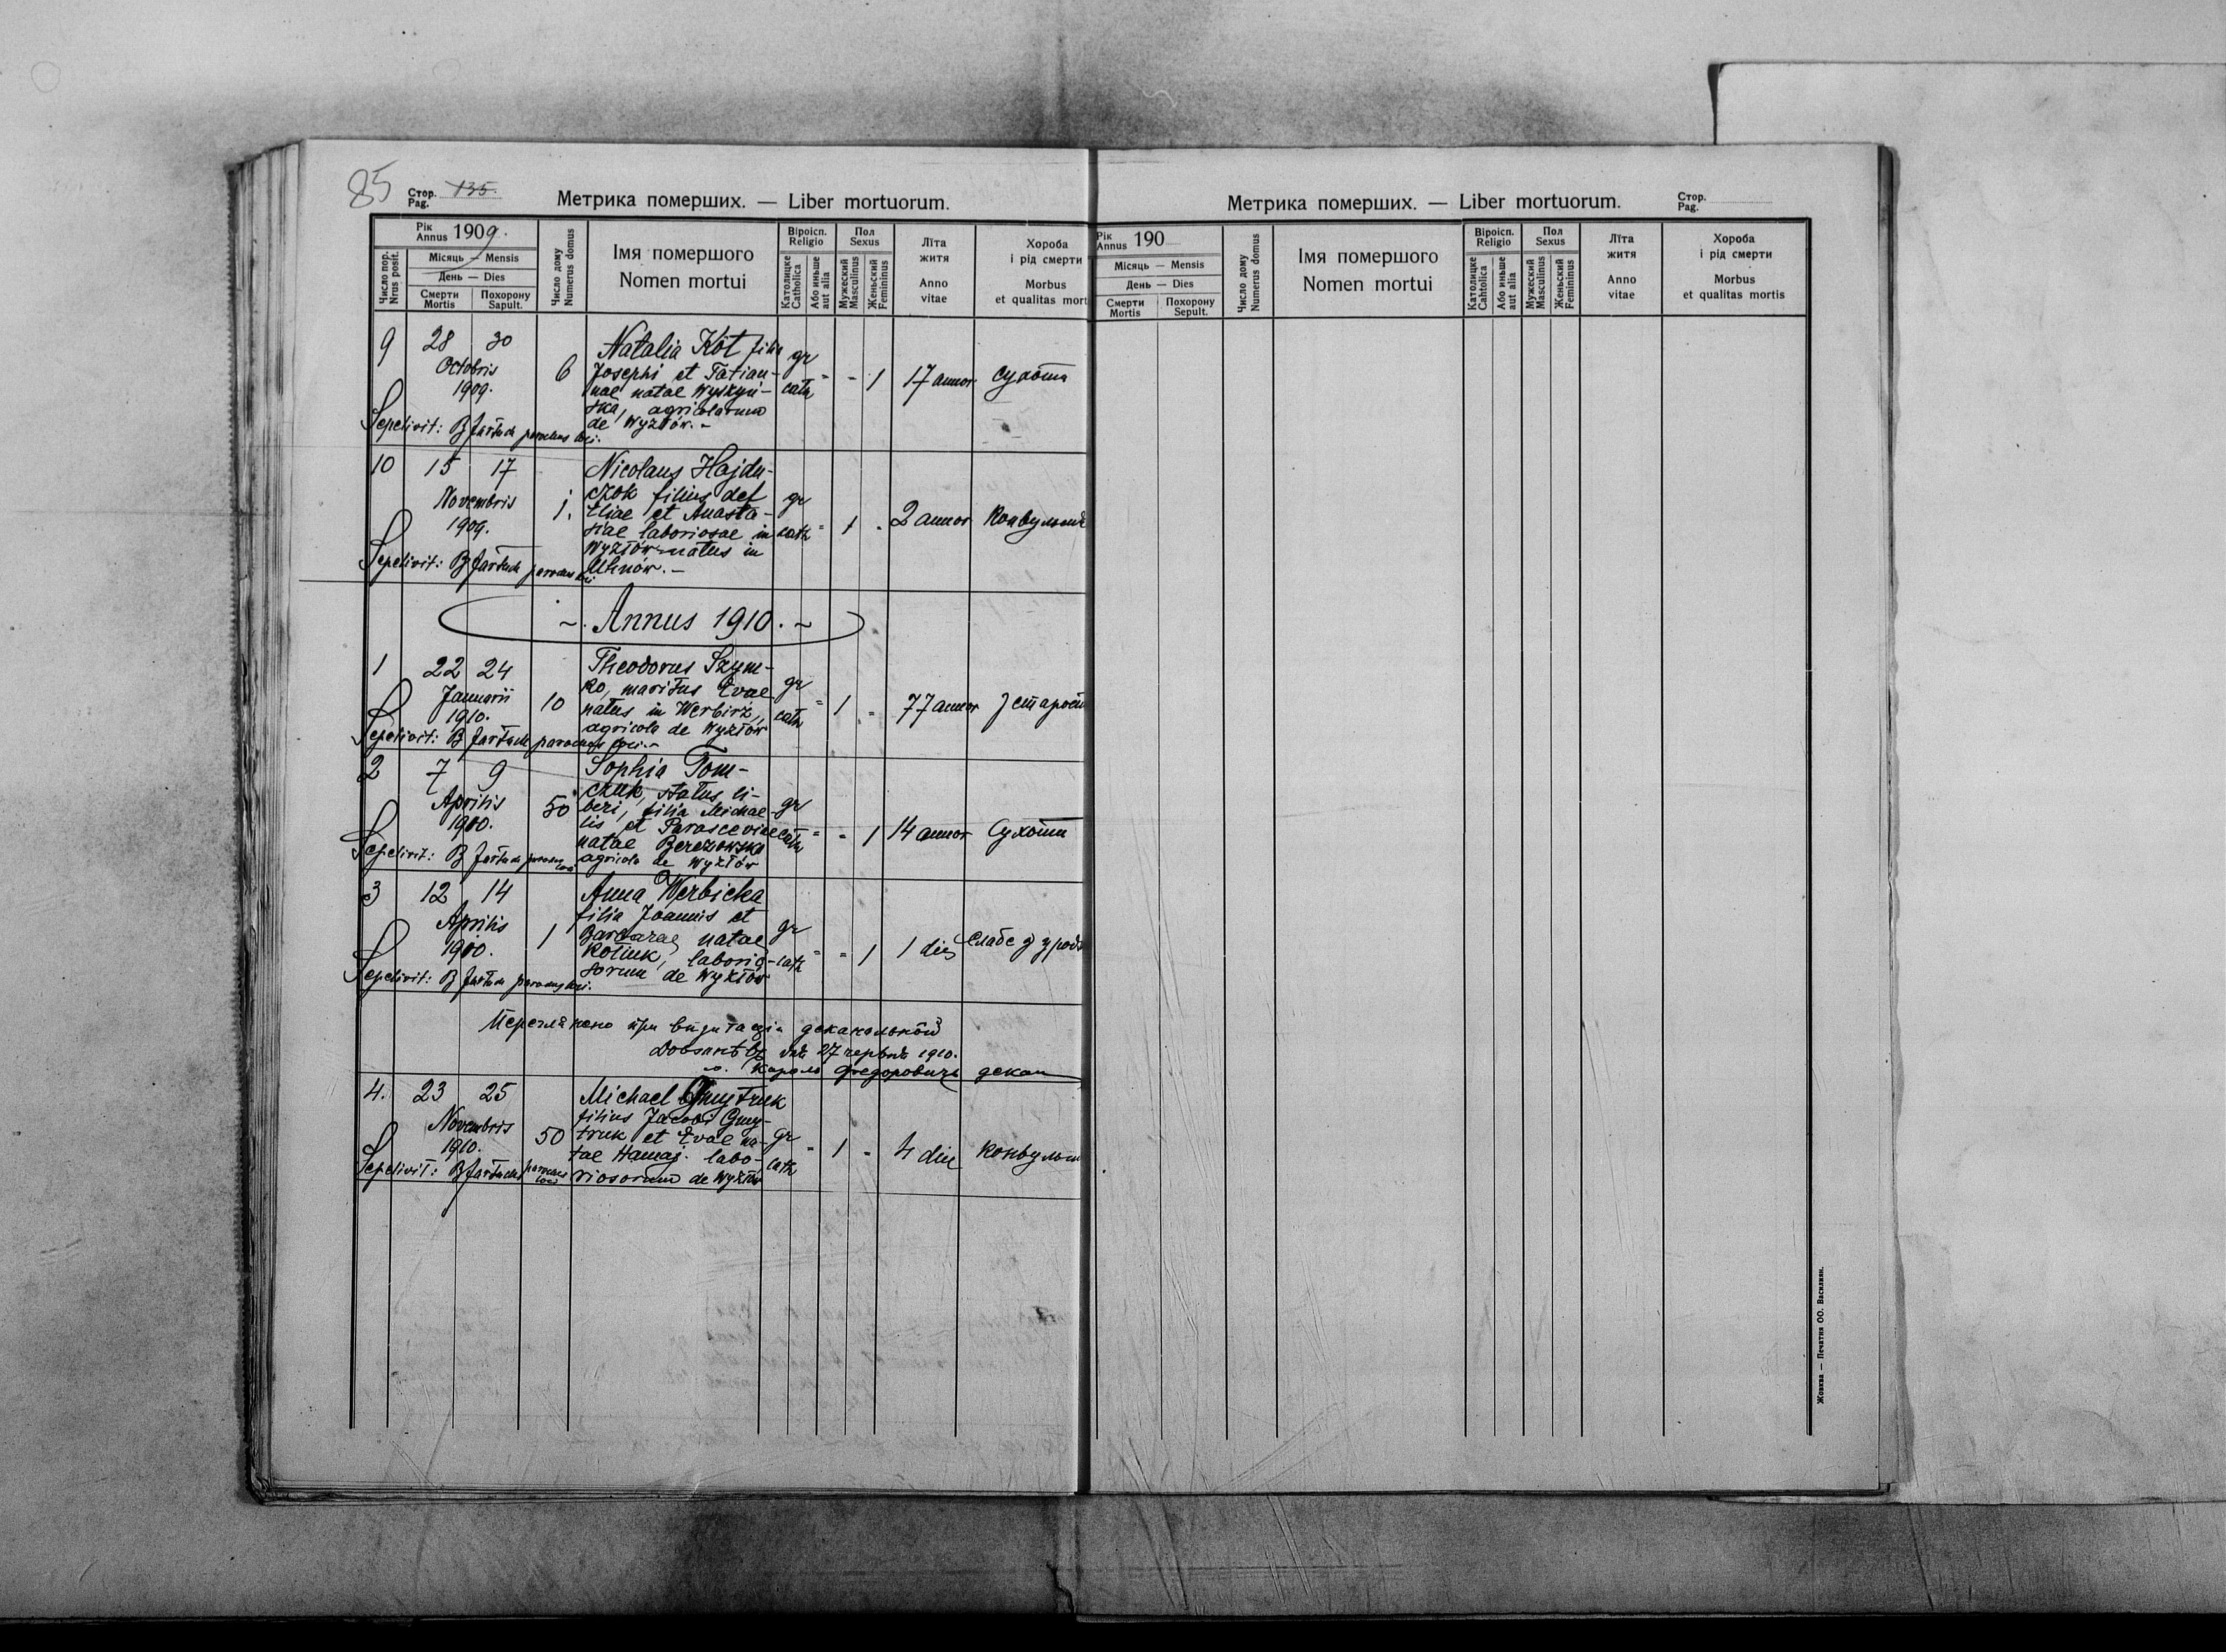 85
Стор. Pag. 135.
Метрика померших. — Liber mortuorum.
Рік Annus 1909.
Число пор. Nrus posit.
Місяць — Mensis
День — Dies
Смерти Mortis
Похорону Sapult.
Число дому Numerus domus
Імя помершого
Nomen mortui
Віроісп. Religio
Католицке Catholica
Або иньше aut alia
Пол Sexus
Мужеский Masculinus
Женьский Femininus
Лїта житя
Anno vitae
Хороба і рід смерти
Morbus et qualitas mort
9 28 30
Octobris
1909.
6
Natalia Kót filia
Josephi et Tatian-
nae natae
agricolarum
de Wyżłów. -
gr cath " - 1 17 annor сухоти
Sepelivit: B parochus loci.
10 15 17
Novembris
1909.
1.
Nicolaus Hajdu-
czok filius def
Eliae et Anasta-
siae laboriosae in
Wyżłów natus in
Uhnów. -
gr cath " 1 - 2 annor
Sepelivit: B parochus loci
~. Annus 1910. ~
1 22 24
Januarii
1910.
10
Theodorus Szym-
ko, maritus Evae
natus in Werbiż,
agricola de Wyżłów
gr cath " 1 - 77 annor
Sepelivit: B parochus loci. -
2 7 9
Aprilis
1910.
50
Sophia Tom-
czuk, status li-
beri, filia Michae-
lis et Parasceviae
natae Berezowska
agricola de Wyżłów
gr cath " - 1 14 annor Сухоти
Sepelivit: B parochus loci
3 12 14
Aprilis
1910.
1
Anna Werbicka
filia Joannis et
Barbarae natae
Kotiuk, laborio-
sorum de Wyżłów
gr cath " - 1 1 dies
Sepelivit: B parochus loci.
27 червня 1910.
о. Кароль Федорович декан
4. 23 25
Novembris
1910.
50
Michael Gmytruk
filius Jacobi Gmy-
truk et Evae na-
tae Hamaj. labo-
riosorum de Wyżłów
gr cath " 1 - 4 dies
Sepelivit: B parochus loci
Метрика померших. — Liber mortuorum.
Стор. Pag.
Рік Annus 190
Місяць — Mensis
День — Dies
Смерти Mortis
Похорону Sepult.
Число дому Numerus domus
Імя помершого
Nomen mortui
Віроісп. Religio
Католицке Cahtolica
Або иньше aut alia
Пол Sexus
Мужеский Masculinus
Женьский Femininus
Лїта житя
Anno vitae
Хороба і рід смерти
Morbus et qualitas mortis
Жовква — Печатня ОО. Василиян.